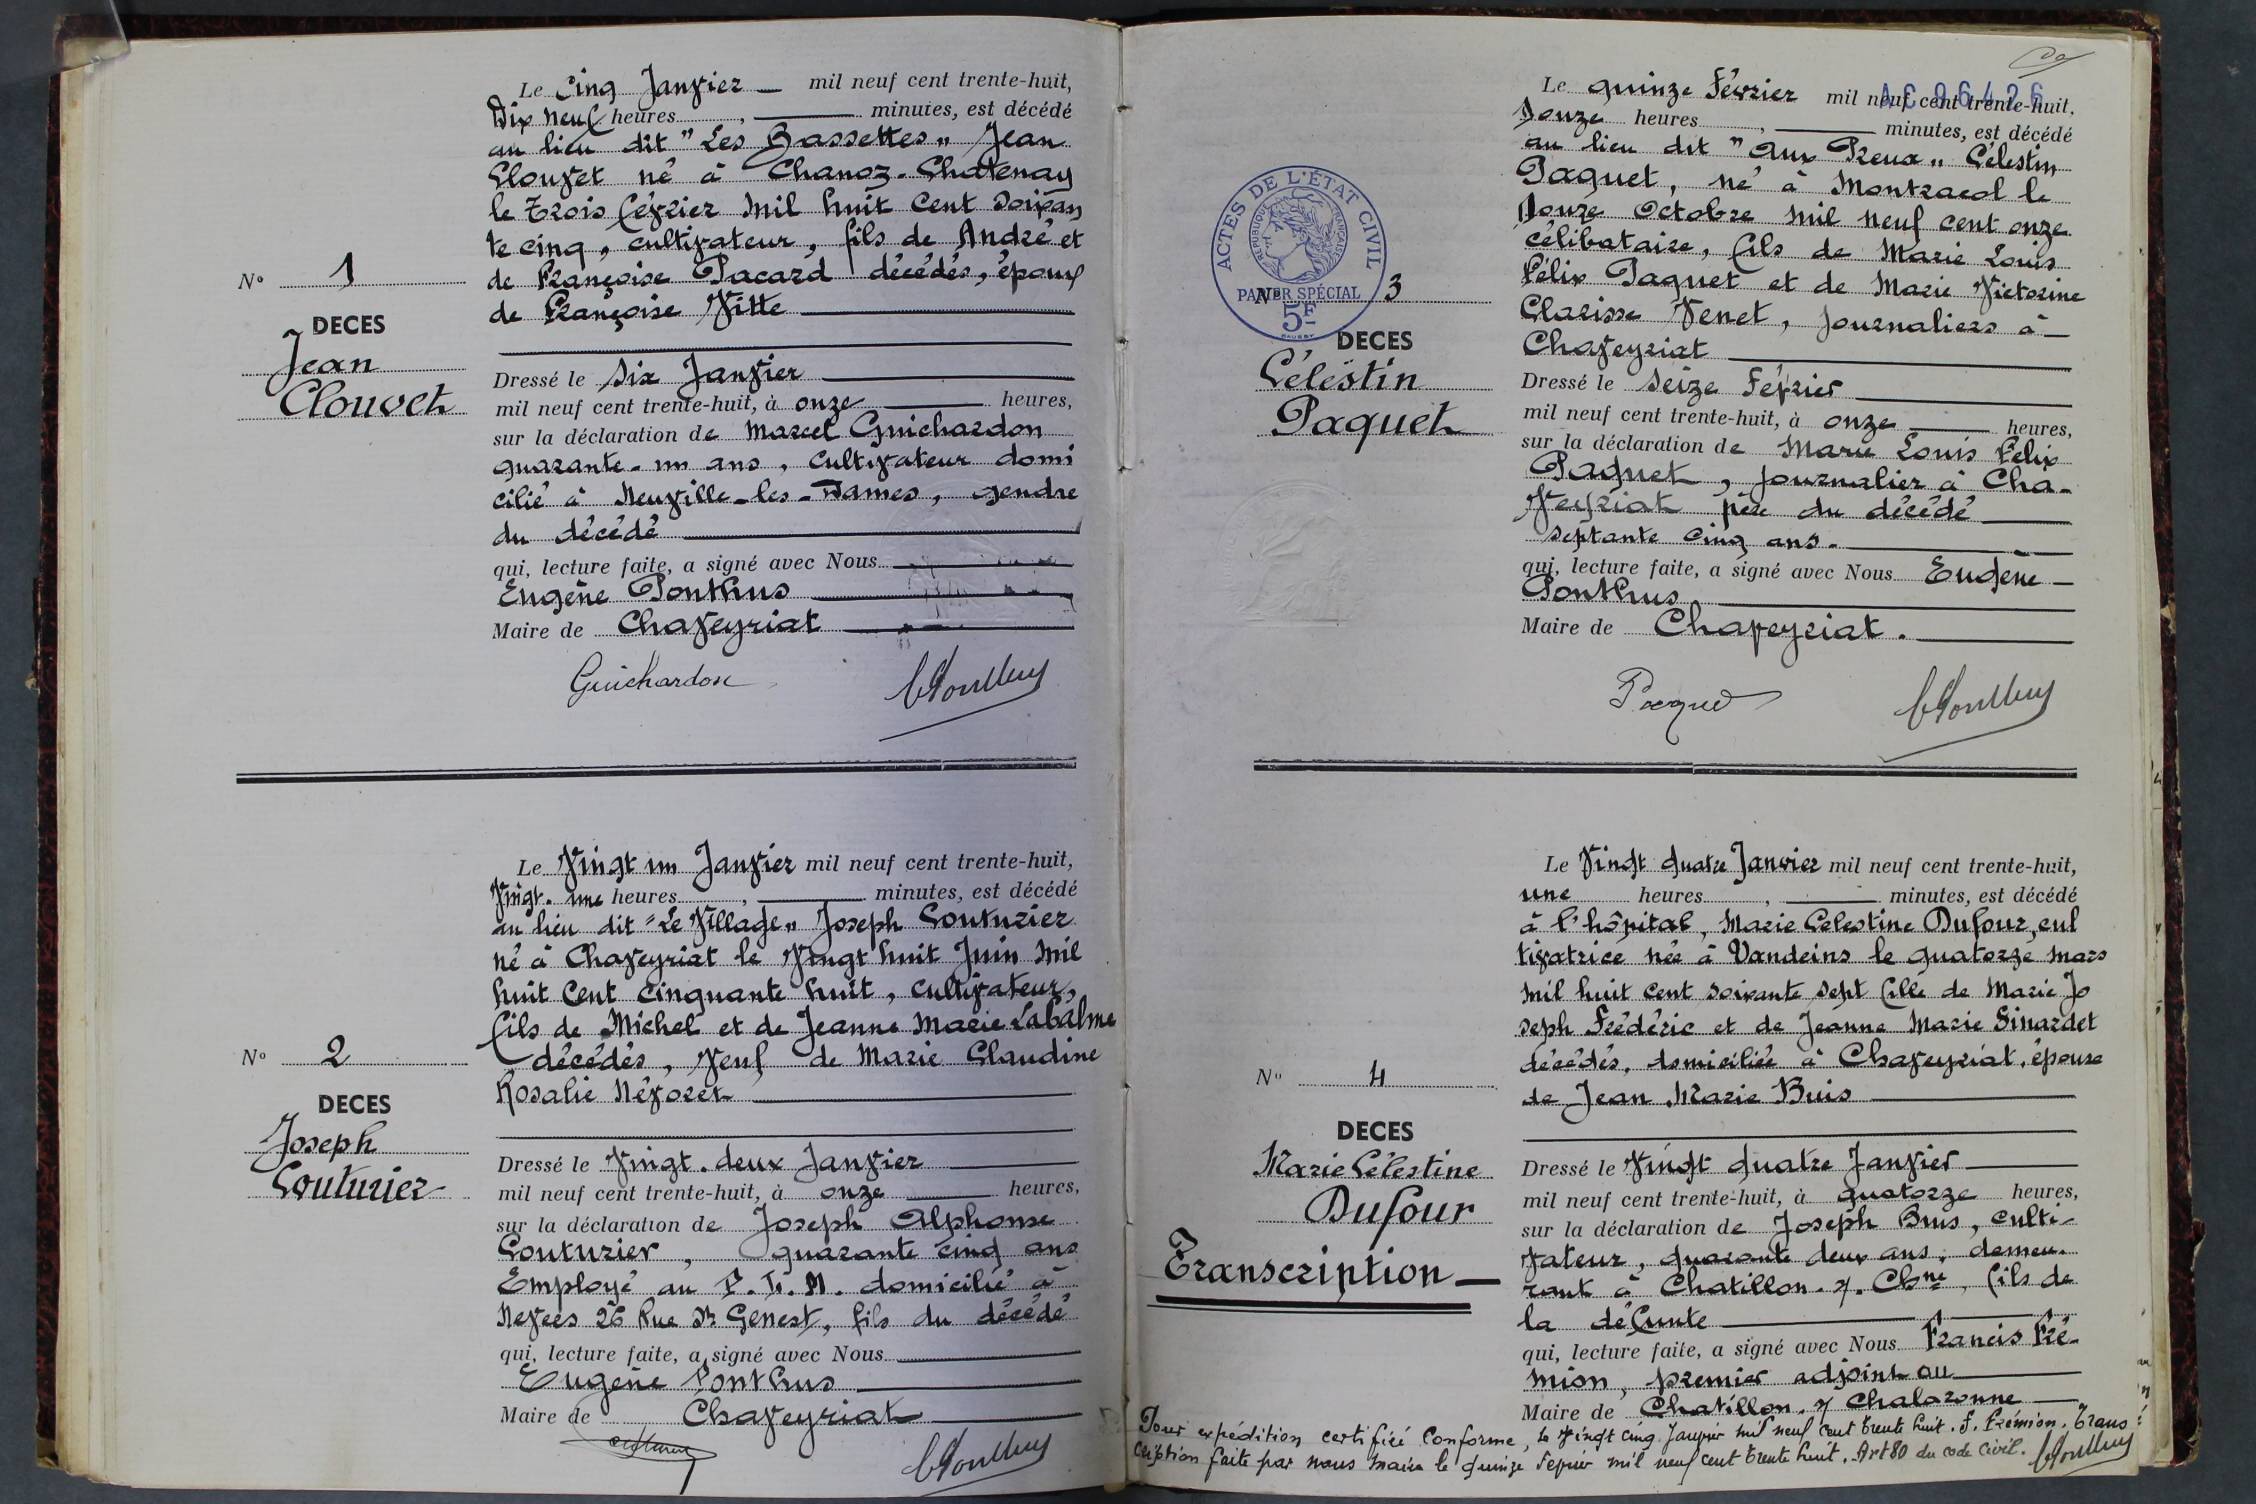 Le Cinq Janvier mil neuf cent trente-huit,
Dix neuf heures, minutes, est décédé
au lieu dit "Les Bassettes" Jean
Clouvet né à Chanoz-Chatenay
le trois février mil huit cent soixan
te cinq, cultivateur, fils de André et
de Françoise Pacard décédés, époux
de Françoise Vitte
N° 1
DECES
Jean
Clouvet
Dressé le six Janvier
mil neuf cent trente-huit, à onze heures,
sur la déclaration de Marcel Guichardon
quarante-un ans, cultivateur domi
cilié à Neuville-les-Dames, gendre
du décédé
qui, lecture faite, a signé avec Nous
Eugène Ponthus
Maire de Chaveyriat
Guichardon
Le Vingt un Janvier mil neuf cent trente-huit,
Vingt-une heures, minutes, est décédé
au lieu dit "Le Village" Joseph Couturier
né à Chaveyriat le Vingt huit Juin mil
huit cent cinquante huit, cultivateur,
fils de Michel et de Jeanne Marie Labalme
décédés, Veuf de Marie Claudine
Rosalie Névoret
N° 2
DECES
Joseph
Couturier
Dressé le Vingt-deux Janvier
mil neuf cent trente-huit, à onze heures,
sur la déclaration de Joseph Alphonse
Couturier, quarante cinq ans
Employé au P.L.M. domicilié à
Nevers 26 Rue St Genest, fils du décédé
qui, lecture faite, a signé avec Nous
Eugène Ponthus
Maire de Chaveyriat
Le quinze Février mil neuf cent trente-huit,
Douze heures, minutes, est décédé
au lieu dit "Aux Preux" Célestin
Paquet, né à Montracol le
Douze Octobre mil neuf cent onze
célibataire, fils de Marie Louis
Félix Paquet et de Marie Victorine
Clarisse Venet, journaliers à
Chaveyriat
ACTES DE L'ÉTAT CIVIL
RÉPUBLIQUE FRANÇAISE
PAPIER SPÉCIAL
5F
N° 3
DECES
Célestin
Paquet
Dressé le seize Février
mil neuf cent trente-huit, à onze heures,
sur la déclaration de Marie Louis Félix
Paquet, journalier à Cha-
veyriat père du décédé
septante cinq ans.
qui, lecture faite, a signé avec Nous Eugène
Ponthus
Maire de Chaveyriat.
Le Vingt quatre Janvier mil neuf cent trente-huit,
une heures, minutes, est décédé
à l'hôpital, Marie Celestine Dufour, cul
tivatrice née à Vandeins le quatorze mars
mil huit cent soixante sept fille de Marie Jo
seph Frédéric et de Jeanne Marie Sinardet
décédés, domiciliée à Chaveyriat, épouse
de Jean Marie Buis
N° 4
DECES
Marie Célestine
Dufour
Transcription
Dressé le Vingt quatre Janvier
mil neuf cent trente-huit, à quatorze heures,
sur la déclaration de Joseph Buis, culti-
vateur, quarante deux ans, demeu-
rant à Chatillon-s/-Chne, fils de
la défunte
qui, lecture faite, a signé avec Nous Francis Fré-
mion, premier adjoint au
Maire de Chatillon s/ Chalaronne
Pour expédition certifiée conforme, le vingt cinq janvier mil neuf cent trente huit. F. Frémion. Trans
cription faite par nous maire le quinze Février mil neuf cent trente huit. Art 80 du code civil.